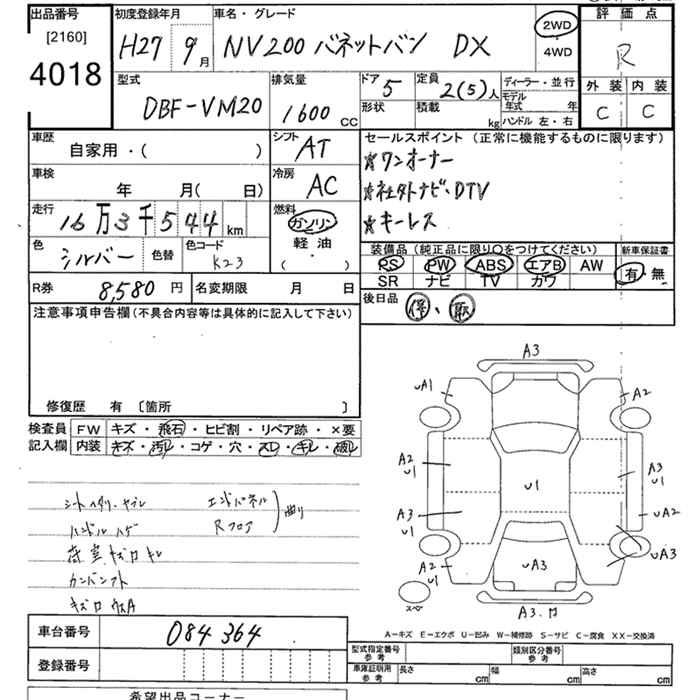 出品番号 初度登録年月 車名・グレード 評価点
[2160]
4018
H27 9月 NV200 バネットバン DX
2WD
4WD
R
型式 排気量 ドア 5 定員 2(5)人 ディーラー・並行 外装 内装
DBF-VM20 1600 CC
形状 積載 kg
モデル年式 年
ハンドル 左・右
C C
車歴 シフト AT セールスポイント (正常に機能するものに限ります)
自家用・( )
☆ワンオーナー
車検 年 月( 日) 冷房 AC
☆社外ナビ・DTV
走行 16万3千544km 燃料 ガソリン
軽油
・( )
☆キーレス
色 シルバー 色替 色コード K23
装備品 (純正品に限り○をつけてください) 新車保証書
PS PW ABS エアB AW 有・無
SR ナビ TV カワ
R券 8,580円 名変期限 月 日
後日品 保、取
注意事項申告欄 (不具合内容等は具体的に記入して下さい)
修復歴 有 〔箇所 〕
検査員 FW キズ・飛石・ヒビ割・リペア跡・×要
記入欄 内装 キズ・汚レ・コゲ・穴・スレ・キレ・破レ
シートヘタリ・ヤブレ エンドパネル
ハンドルハゲ Rフロア 曲り
荷室キズ
A3
UA1 A2
A2 U1
U1
A3 U1
A3 U1
UA2
UA3
A2 U1
UA3
A3.
スペ
A-キズ E-エクボ U-凹み W-補修跡 S-サビ C-腐食 XX-交換済
車台番号 084364
登録番号
型式指定番号 参考 類別区分番号 参考
車庫証明用 参考 長さ cm 幅 cm 高さ cm
希望出品コーナー